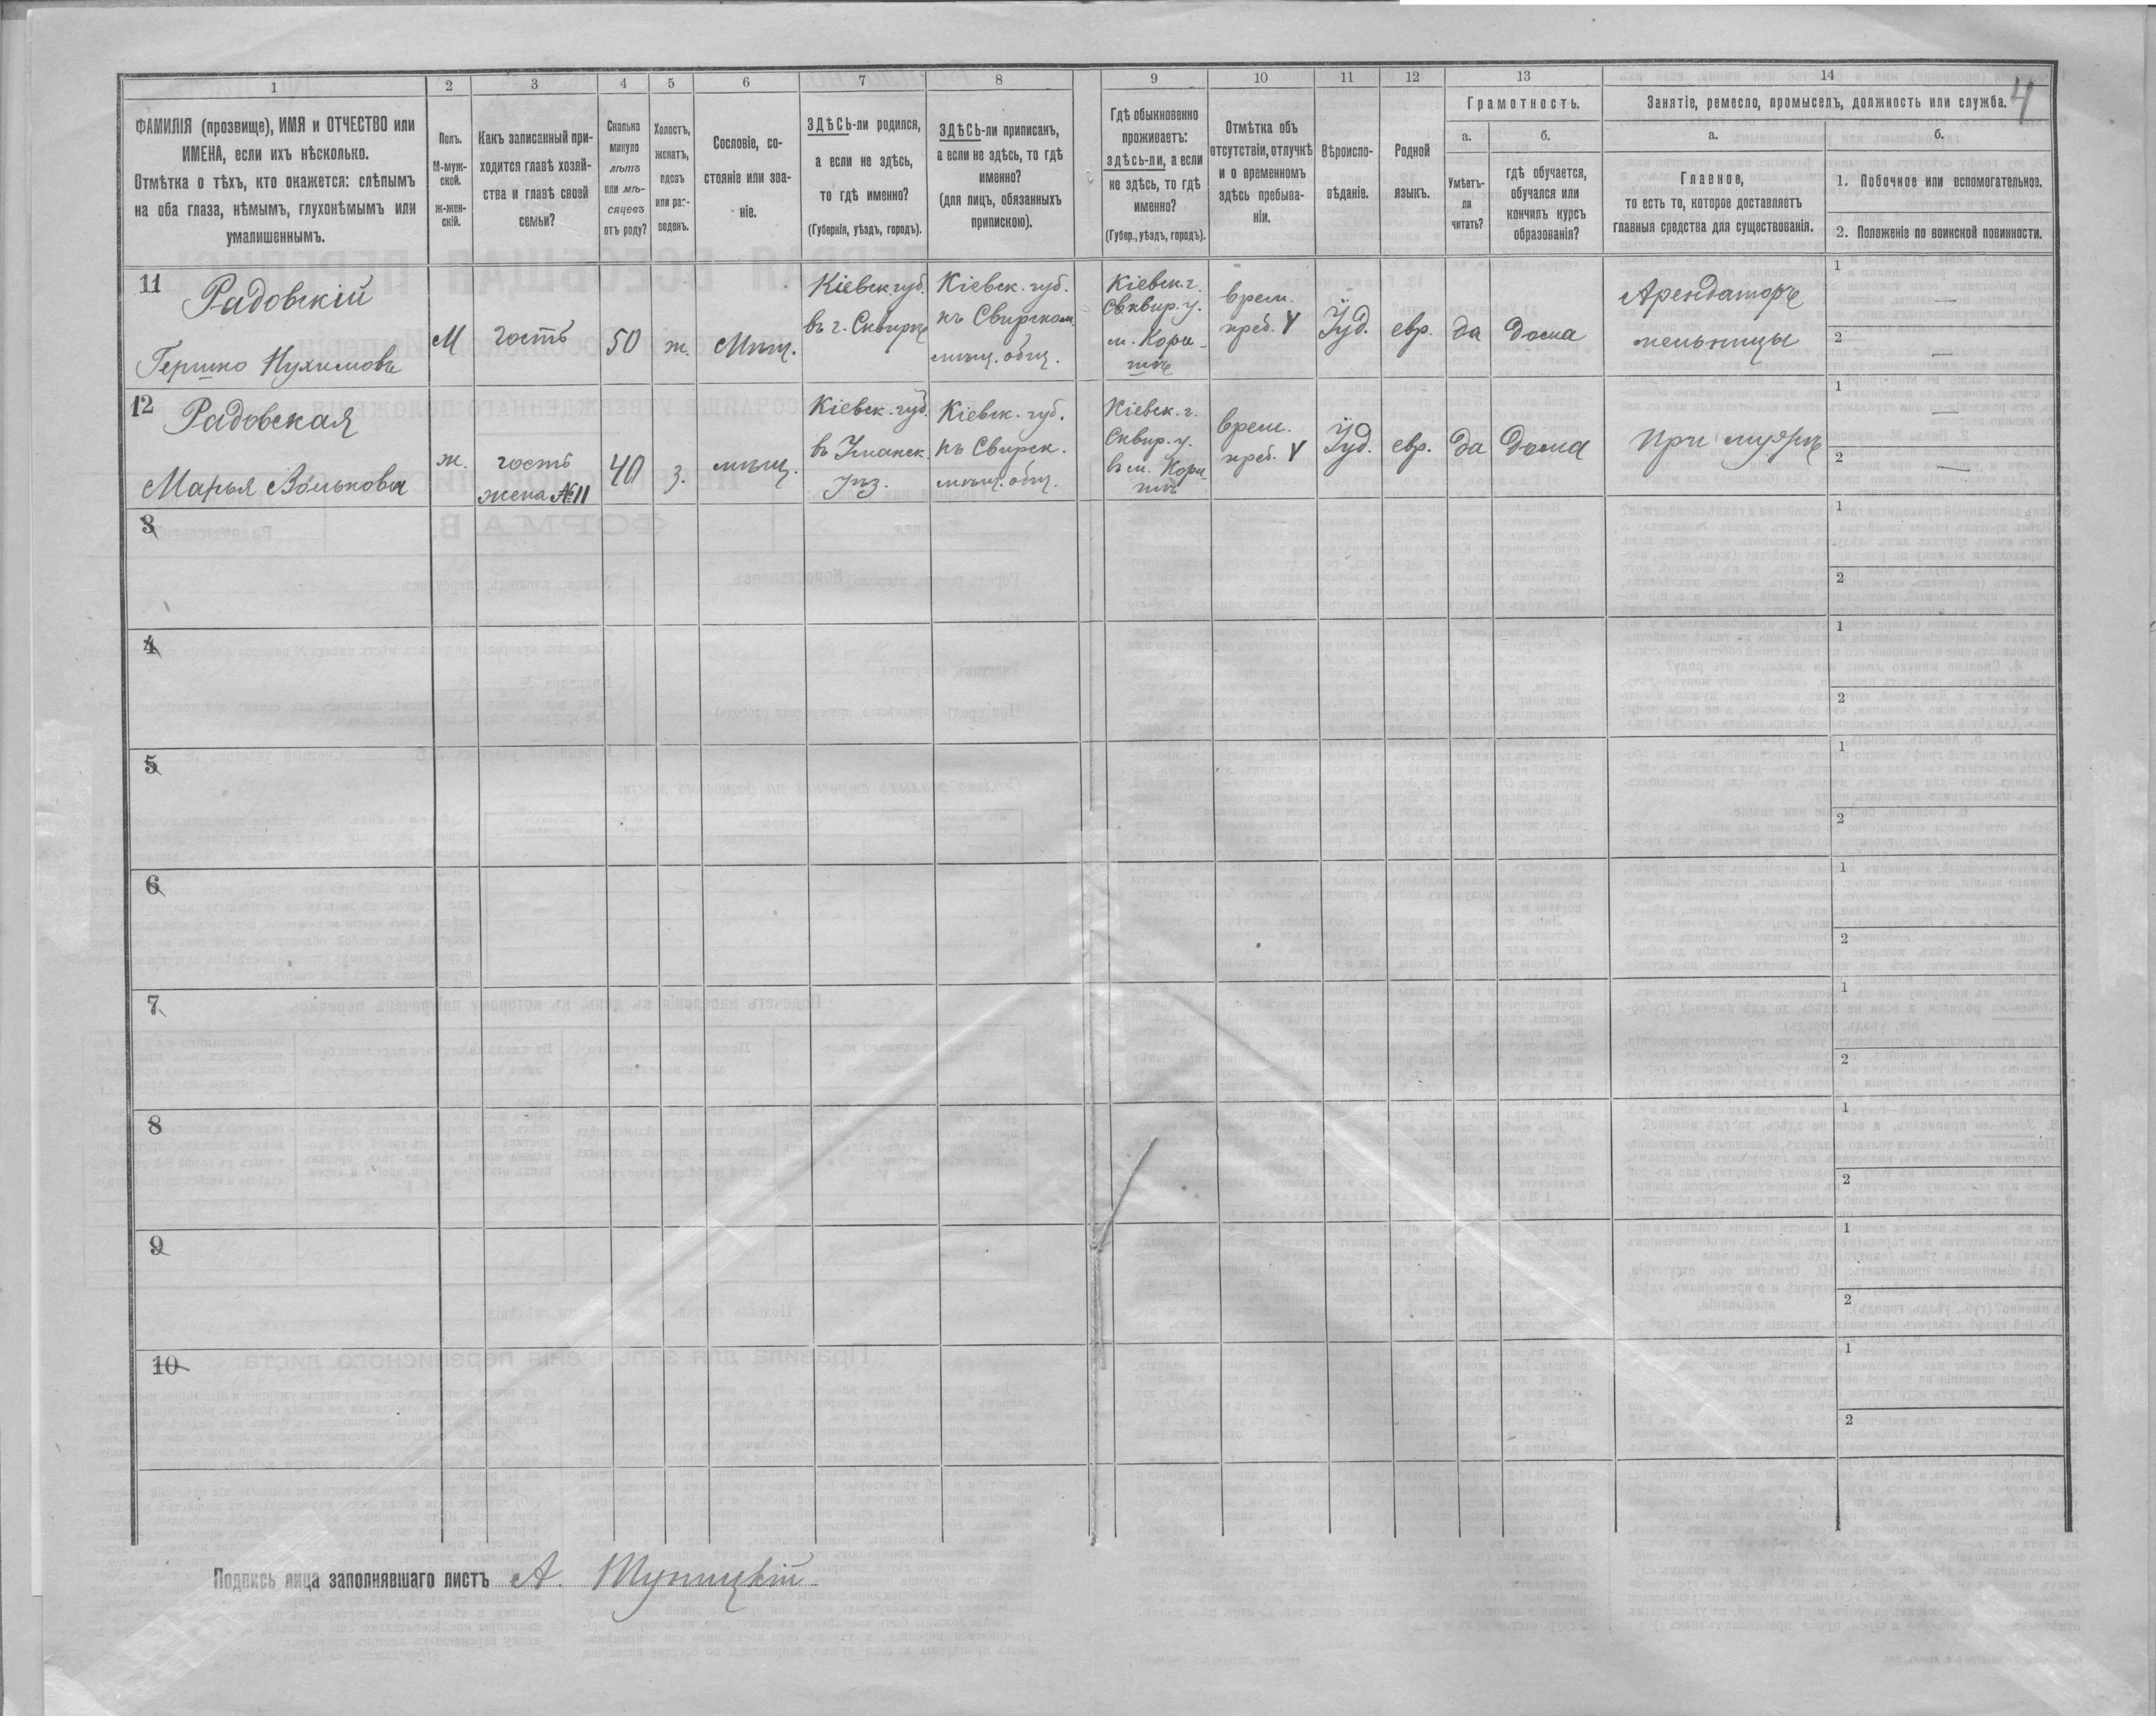 4
1 2 3 4 5 6 7 8 9 10 11 12 13 14
ФАМИЛІЯ (прозвище), ИМЯ и ОТЧЕСТВО или
ИМЕНА, если ихъ нѣсколько.
Отмѣтка о тѣхъ, кто окажется: слѣпымъ
на оба глаза, нѣмымъ, глухонѣмымъ или
умалишеннымъ.
Полъ.
М-муж-
ской.
Ж-жен-
скій.
Какъ записанный при-
ходится главѣ хозяй-
ства и главѣ своей
семьи?
Сколько
минуло
лѣтъ
или мѣ-
сяцевъ
отъ роду?
Холостъ,
женатъ,
вдовъ
или раз-
веденъ.
Сословіе, со-
стояніе или зва-
ніе.
ЗДѢСЬ-ли родился,
а если не здѣсь,
то гдѣ именно?
(Губернія, уѣздъ, городъ).
ЗДѢСЬ-ли приписанъ,
а если не здѣсь, то гдѣ
именно?
(для лицъ, обязанныхъ
припискою).
Гдѣ обыкновенно
проживаетъ:
здѣсь-ли, а если
не здѣсь, то гдѣ
именно?
(Губер., уѣздъ, городъ).
Отмѣтка объ
отсутствіи, отлучкѣ
и о временномъ
здѣсь пребыва-
ніи.
Вѣроиспо-
вѣданіе.
Родной
языкъ.
Грамотность.
а.
Умѣетъ-
ли
читать?
б.
гдѣ обучается,
обучался или
кончилъ курсъ
образованія?
Занятіе, ремесло, промыселъ, должность или служба.
а.
Главное,
то есть то, которое доставляетъ
главныя средства для существованія.
б.
1. Побочное или вспомогательное.
2. Положеніе по воинской повинности.
11
Радовскій
Гершко Нухимовъ
М
гость
50
ж.
Мѣщ.
Кіевск. губ.
въ г. Сквирѣ
Кіевск. губ.
къ Свирском.
мѣщ. общ.
Кіевск. г.
Свквир. у.
м. Кори-
врем.
преб. V
Іуд.
евр.
да
дома
Арендаторъ
мельницы
1 —
2 —
12
Радовская
Марья Волькова
ж.
гость
жена №11
40
з.
мѣщ.
Кіевск. губ.
въ Уманск.
уѣз.
Кіевск. губ.
къ Свирск.
мѣщ. общ.
Кіевск. г.
Сквир. у.
въ м. Кори-
врем.
преб. V
Іуд.
евр.
да
дома
При мужѣ
1 —
2 —
3
1
2
4
1
2
5
1
2
6
1
2
7
1
2
8
1
2
9
1
2
10
1
2
Подпись лица заполнявшаго листъ А.